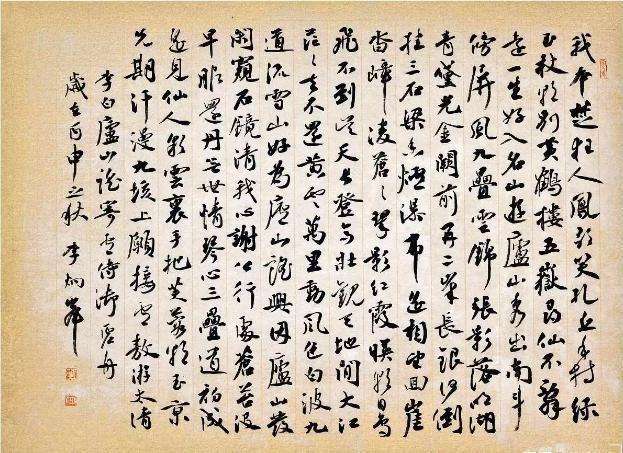 我本楚狂人鳳歌笑孔丘手持綠
玉杖朝別黃鶴樓五嶽尋仙不辭
遠一生好入名山遊廬山秀出南斗
傍屏風九疊雲錦張影落明湖
青黛光金闕前開二峯長銀河倒
挂三石梁香爐瀑布遙相望回崖
沓嶂凌蒼〻翠影紅霞映朝日鳥
飛不到吳天長登高壯觀天地間大江
茫〻去不還黃雲萬里動風色白波九
道流雪山好為廬山謠興因廬山發
閑窺石鏡清我心謝公行處蒼苔沒
早服還丹無世情琴心三疊道初成
遙見仙人彩雲裏手把芙蓉朝玉京
先期汗漫九垓上願接盧敖游太清
李白廬山謠寄盧侍御虛舟
歲在丙申之秋 李炯峯